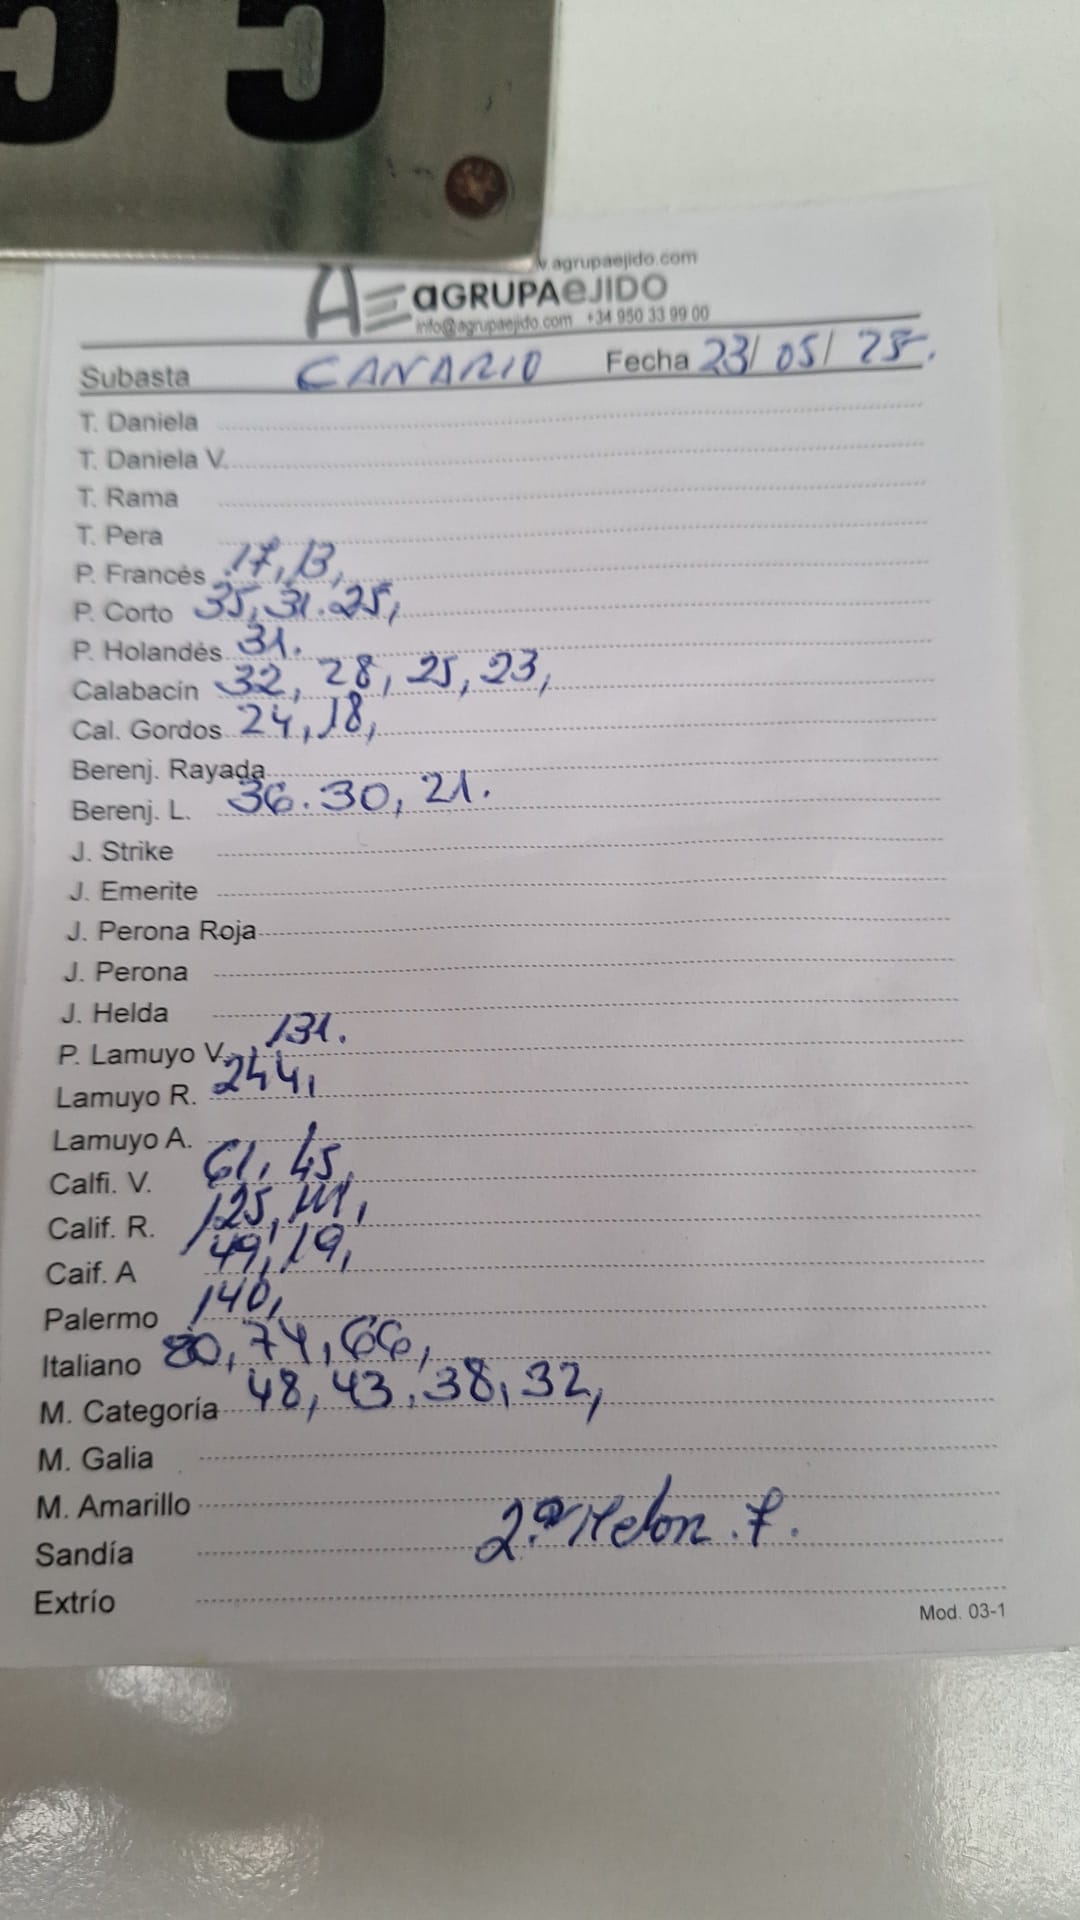 55
w.agrupaejido.com
AE aGRUPAeJIDO
info@agrupaejido.com +34 950 33 99 00
Subasta CANARIO Fecha 23/05/25.
T. Daniela
T. Daniela V.
T. Rama
T. Pera
P. Francés 17, 13,
P. Corto 35, 31. 25,
P. Holandés 31.
Calabacín 32, 28, 25, 23,
Cal. Gordos 24, 18,
Berenj. Rayada
Berenj. L. 36. 30, 21.
J. Strike
J. Emerite
J. Perona Roja
J. Perona
J. Helda
P. Lamuyo V. 131.
Lamuyo R. 244,
Lamuyo A.
Calfi. V. 61, 45,
Calif. R. 125, 111,
Caif. A 49, 19,
Palermo 140,
Italiano 80, 74, 66,
M. Categoría 48, 43, 38, 32,
M. Galia
M. Amarillo
Sandía 2ª Melon. P.
Extrío
Mod. 03-1